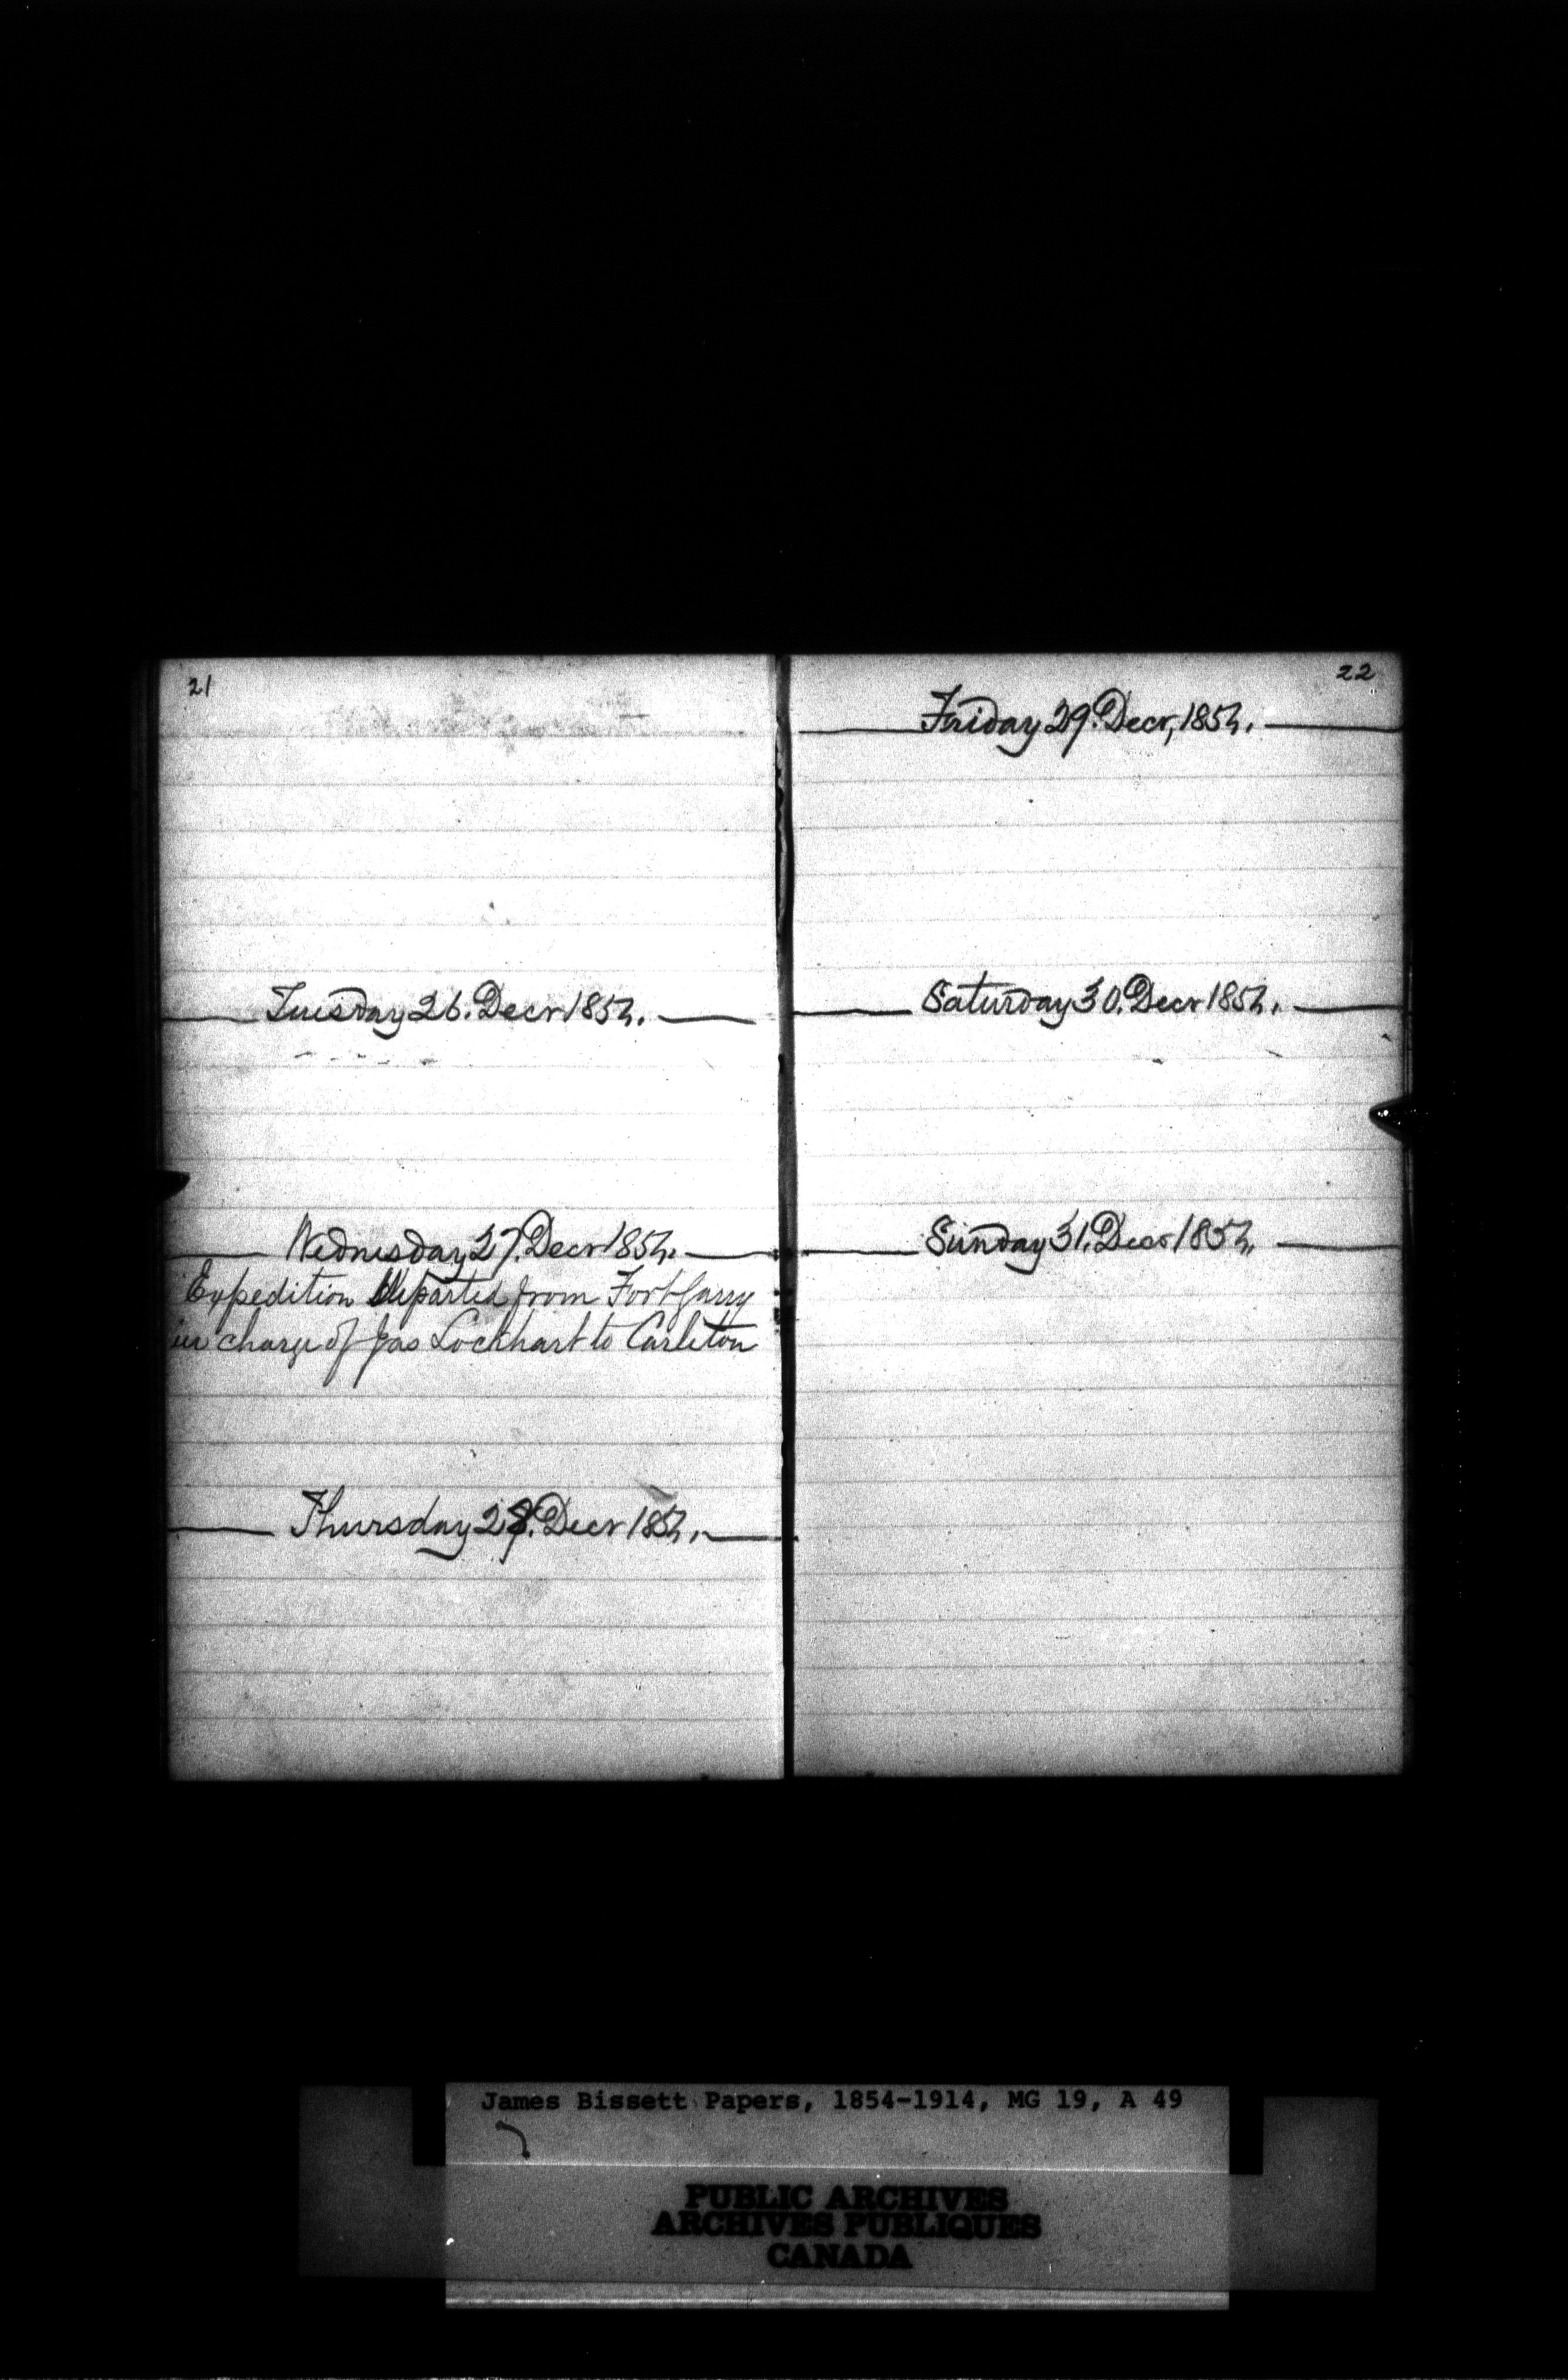 21
Tuesday 26. Decr 1854.
Wednesday 27. Decr 1854.
Expedition departed from Fort Garry
in charge of Jas Lockhart to Carleton
Thursday 28. Decr 1854.
22
Friday 29. Decr, 1854.
Saturday 30. Decr 1854.
Sunday 31. Decr 1854.
James Bissett Papers, 1854-1914, MG 19, A 49
PUBLIC ARCHIVES
ARCHIVES PUBLIQUES
CANADA